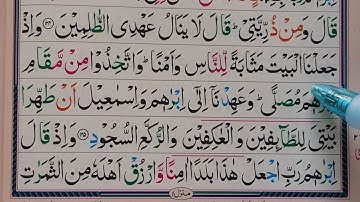 قَالَ وَمِنْ ذُرِّيَّتِىْ ؕ قَالَ لَا يَنَالُ عَهْدِى الظّٰلِمِيْنَ ﴿۱۲۴﴾ وَاِذْ
جَعَلْنَا الْبَيْتَ مَثَابَةً لِّلنَّاسِ وَاَمْنًا ؕ وَاتَّخِذُوْا مِنْ مَّقَامِ
اِبْرٰهٖمَ مُصَلًّى ؕ وَعَهِدْنَاۤ اِلٰٓى اِبْرٰهٖمَ وَاِسْمٰعِيْلَ اَنْ طَهِّرَا
بَيْتِىَ لِلطَّآئِفِيْنَ وَالْعٰكِفِيْنَ وَالرُّكَّعِ السُّجُوْدِ ﴿۱۲۵﴾ وَاِذْ قَالَ
اِبْرٰهٖمُ رَبِّ اجْعَلْ هٰذَا بَلَدًا اٰمِنًا وَّارْزُقْ اَهْلَهٗ مِنَ الثَّمَرٰتِ
منزل ۱